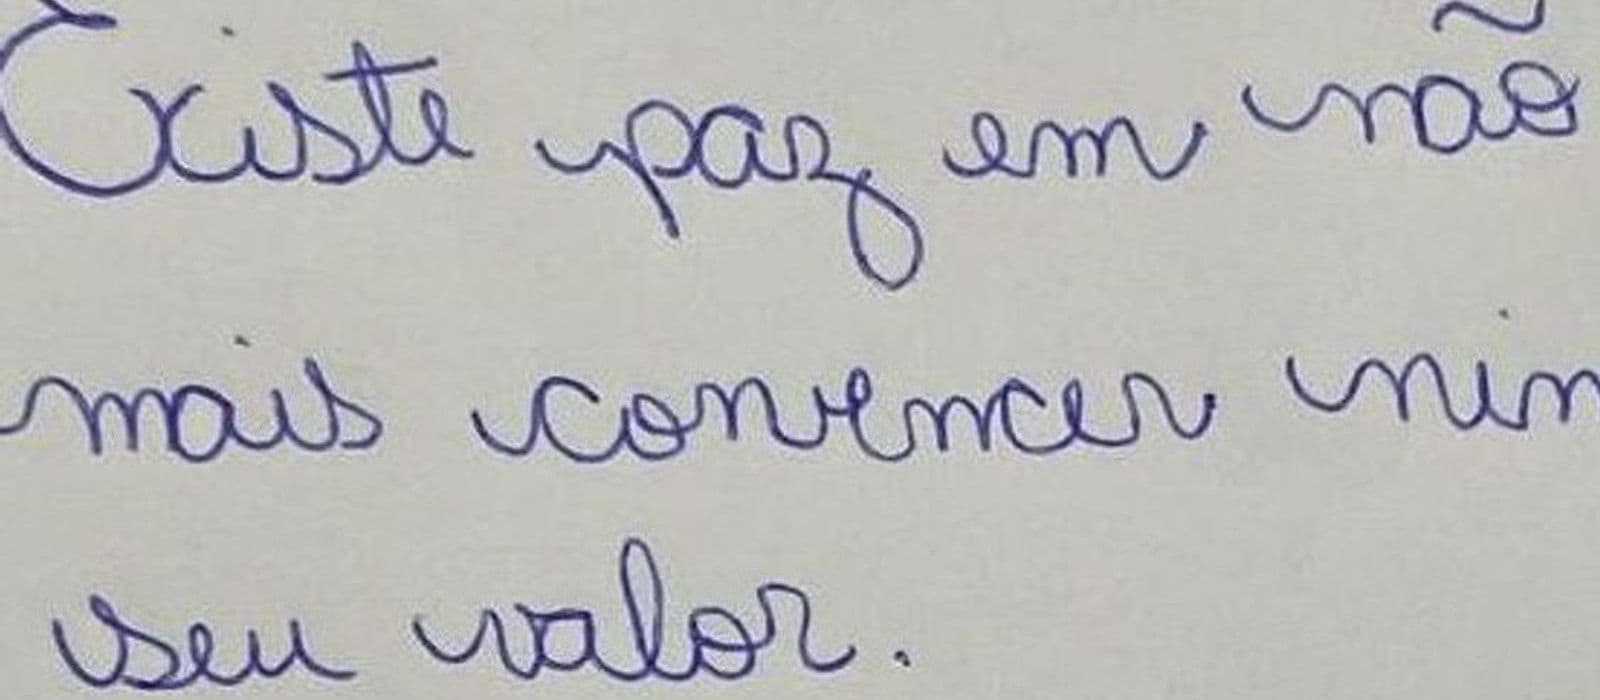 Existe paz em não
mais convencer nin
seu valor.